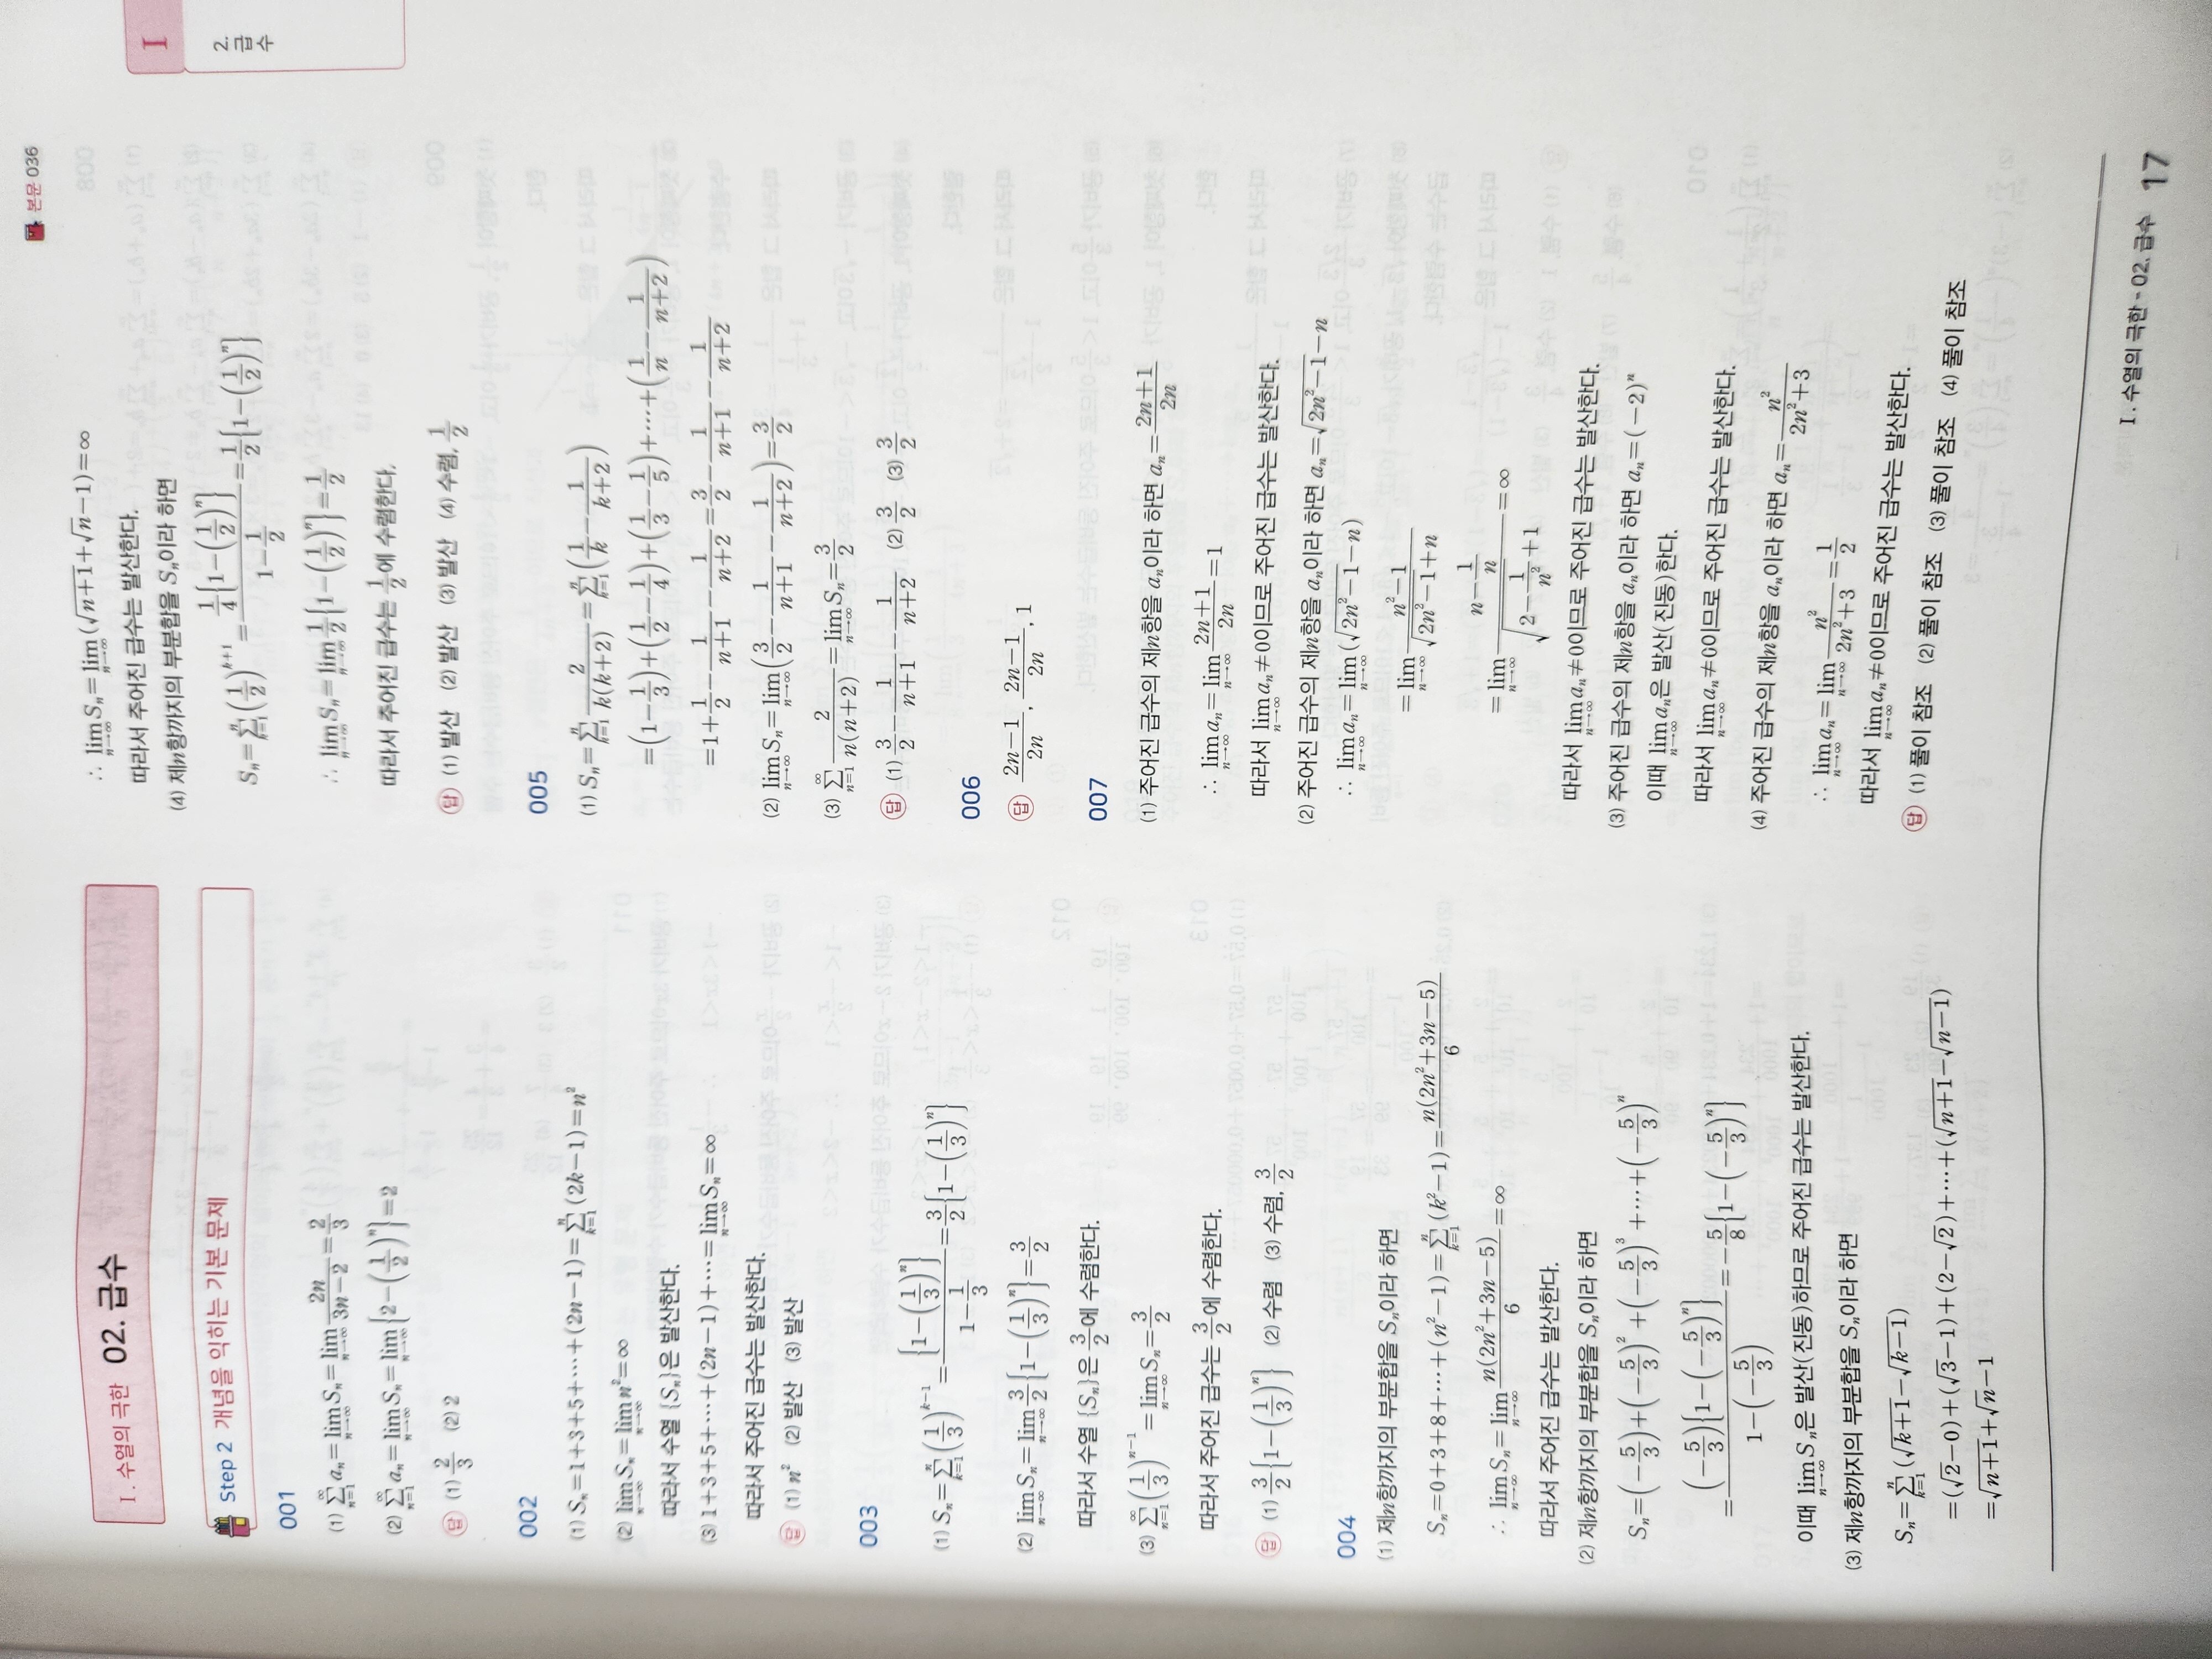 본문 036
I
2. 급수
I. 수열의 극한 02. 급수
Step 2 개념을 익히는 기본 문제
001
(1) \sum_{n=1}^{∞} a_n = \lim_{n→∞} S_n = \lim_{n→∞} \frac{2n}{3n-2} = \frac{2}{3}
(2) \sum_{n=1}^{∞} a_n = \lim_{n→∞} S_n = \lim_{n→∞} \{2-(\frac{1}{2})^n\} = 2
답 (1) \frac{2}{3} (2) 2
002
(1) S_n = 1+3+5+⋯+(2n-1) = \sum_{k=1}^{n} (2k-1) = n^2
(2) \lim_{n→∞} S_n = \lim_{n→∞} n^2 = ∞
따라서 수열 {S_n}은 발산한다.
(3) 1+3+5+⋯+(2n-1)+⋯ = \lim_{n→∞} S_n = ∞
따라서 주어진 급수는 발산한다.
답 (1) n^2 (2) 발산 (3) 발산
003
(1) S_n = \sum_{k=1}^{n} (\frac{1}{3})^{k-1} = \frac{\{1-(\frac{1}{3})^n\}}{1-\frac{1}{3}} = \frac{3}{2}\{1-(\frac{1}{3})^n\}
(2) \lim_{n→∞} S_n = \lim_{n→∞} \frac{3}{2}\{1-(\frac{1}{3})^n\} = \frac{3}{2}
따라서 수열 {S_n}은 \frac{3}{2}에 수렴한다.
(3) \sum_{n=1}^{∞} (\frac{1}{3})^{n-1} = \lim_{n→∞} S_n = \frac{3}{2}
따라서 주어진 급수는 \frac{3}{2}에 수렴한다.
답 (1) \frac{3}{2}\{1-(\frac{1}{3})^n\} (2) 수렴 (3) 수렴, \frac{3}{2}
004
(1) 제n항까지의 부분합을 S_n이라 하면
S_n = 0+3+8+⋯+(n^2-1) = \sum_{k=1}^{n} (k^2-1) = \frac{n(2n^2+3n-5)}{6}
∴ \lim_{n→∞} S_n = \lim_{n→∞} \frac{n(2n^2+3n-5)}{6} = ∞
따라서 주어진 급수는 발산한다.
(2) 제n항까지의 부분합을 S_n이라 하면
S_n = (-\frac{5}{3})+(-\frac{5}{3})^2+(-\frac{5}{3})^3+⋯+(-\frac{5}{3})^n
= \frac{(-\frac{5}{3})\{1-(-\frac{5}{3})^n\}}{1-(-\frac{5}{3})} = -\frac{5}{8}\{1-(-\frac{5}{3})^n\}
이때 \lim_{n→∞} S_n은 발산(진동)하므로 주어진 급수는 발산한다.
(3) 제n항까지의 부분합을 S_n이라 하면
S_n = \sum_{k=1}^{n} (\sqrt{k+1}-\sqrt{k-1})
= (\sqrt{2}-0)+(\sqrt{3}-1)+(2-\sqrt{2})+⋯+(\sqrt{n+1}-\sqrt{n-1})
= \sqrt{n+1}+\sqrt{n}-1
∴ \lim_{n→∞} S_n = \lim_{n→∞} (\sqrt{n+1}+\sqrt{n}-1) = ∞
따라서 주어진 급수는 발산한다.
(4) 제n항까지의 부분합을 S_n이라 하면
S_n = \sum_{k=1}^{n} (\frac{1}{2})^{k+1} = \frac{\frac{1}{4}\{1-(\frac{1}{2})^n\}}{1-\frac{1}{2}} = \frac{1}{2}\{1-(\frac{1}{2})^n\}
∴ \lim_{n→∞} S_n = \lim_{n→∞} \frac{1}{2}\{1-(\frac{1}{2})^n\} = \frac{1}{2}
따라서 주어진 급수는 \frac{1}{2}에 수렴한다.
답 (1) 발산 (2) 발산 (3) 발산 (4) 수렴, \frac{1}{2}
005
(1) S_n = \sum_{k=1}^{n} \frac{2}{k(k+2)} = \sum_{k=1}^{n} (\frac{1}{k}-\frac{1}{k+2})
= (1-\frac{1}{3})+(\frac{1}{2}-\frac{1}{4})+(\frac{1}{3}-\frac{1}{5})+⋯+(\frac{1}{n}-\frac{1}{n+2})
= 1+\frac{1}{2}-\frac{1}{n+1}-\frac{1}{n+2} = \frac{3}{2}-\frac{1}{n+1}-\frac{1}{n+2}
(2) \lim_{n→∞} S_n = \lim_{n→∞} (\frac{3}{2}-\frac{1}{n+1}-\frac{1}{n+2}) = \frac{3}{2}
(3) \sum_{n=1}^{∞} \frac{2}{n(n+2)} = \lim_{n→∞} S_n = \frac{3}{2}
답 (1) \frac{3}{2}-\frac{1}{n+1}-\frac{1}{n+2} (2) \frac{3}{2} (3) \frac{3}{2}
006
답 \frac{2n-1}{2n}, \frac{2n-1}{2n}, 1
007
(1) 주어진 급수의 제n항을 a_n이라 하면 a_n = \frac{2n+1}{2n}
∴ \lim_{n→∞} a_n = \lim_{n→∞} \frac{2n+1}{2n} = 1
따라서 \lim_{n→∞} a_n ≠ 0이므로 주어진 급수는 발산한다.
(2) 주어진 급수의 제n항을 a_n이라 하면 a_n = \sqrt{2n^2-1}-n
∴ \lim_{n→∞} a_n = \lim_{n→∞} (\sqrt{2n^2-1}-n)
= \lim_{n→∞} \frac{n^2-1}{\sqrt{2n^2-1}+n}
= \lim_{n→∞} \frac{n-\frac{1}{n}}{\sqrt{2-\frac{1}{n^2}}+1} = ∞
따라서 \lim_{n→∞} a_n ≠ 0이므로 주어진 급수는 발산한다.
(3) 주어진 급수의 제n항을 a_n이라 하면 a_n = (-2)^n
이때 \lim_{n→∞} a_n은 발산(진동)한다.
따라서 \lim_{n→∞} a_n ≠ 0이므로 주어진 급수는 발산한다.
(4) 주어진 급수의 제n항을 a_n이라 하면 a_n = \frac{n^2}{2n^2+3}
∴ \lim_{n→∞} a_n = \lim_{n→∞} \frac{n^2}{2n^2+3} = \frac{1}{2}
따라서 \lim_{n→∞} a_n ≠ 0이므로 주어진 급수는 발산한다.
답 (1) 풀이 참조 (2) 풀이 참조 (3) 풀이 참조 (4) 풀이 참조
I. 수열의 극한 - 02. 급수 17